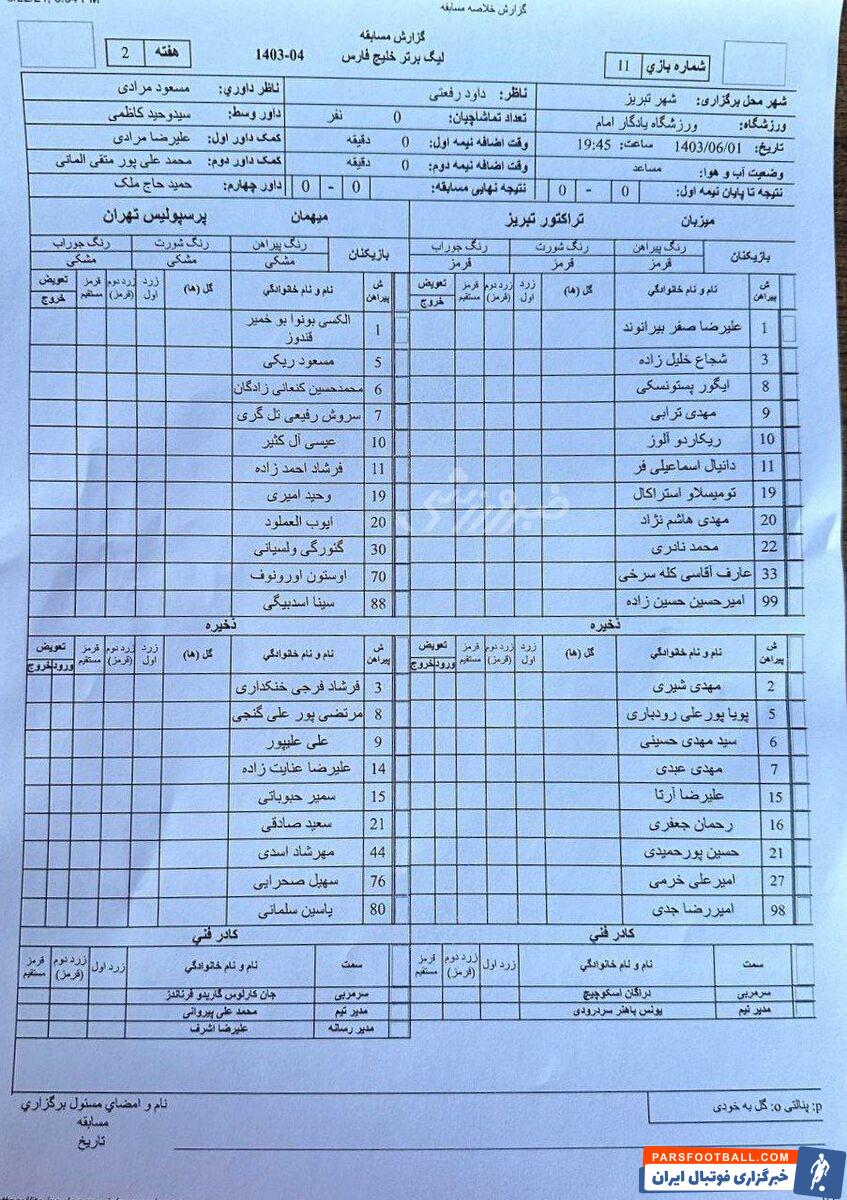 گزارش خلاصه مسابقه
گزارش مسابقه
لیگ برتر خلیج فارس 1403-04
شماره بازي 11
هفته 2
شهر محل برگزاری: شهر تبریز
ناظر: داود رفعتی
ناظر داوري: مسعود مرادی
ورزشگاه: ورزشگاه یادگار امام
تعداد تماشاچیان: 0 نفر
داور وسط: سیدوحید کاظمی
تاریخ: 1403/06/01 ساعت: 19:45
وقت اضافه نیمه اول: 0 دقیقه
کمک داور اول: علیرضا مرادی
وضعیت آب و هوا: مساعد
وقت اضافه نیمه دوم: 0 دقیقه
کمک داور دوم: محمد علی پور متقی المانی
نتیجه تا پایان نیمه اول: 0 - 0
نتیجه نهایی مسابقه: 0 - 0
داور چهارم: حمید حاج ملک
میزبان تراکتور تبریز
بازیکنان
رنگ پیراهن رنگ شورت رنگ جوراب
قرمز قرمز قرمز
ش پیراهن نام و نام خانوادگي گل (ها) زرد اول زرد دوم (قرمز) قرمز مستقیم تعویض خروج
1 علیرضا صفر بیرانوند
3 شجاع خلیل زاده
8 ایگور پستونسکی
9 مهدی ترابی
10 ریکاردو آلوز
11 دانیال اسماعیلی فر
19 تومیسلاو استراکال
20 مهدی هاشم نژاد
22 محمد نادری
33 عارف آقاسی کله سرخی
99 امیرحسین حسین زاده
ذخیره
ش پیراهن نام و نام خانوادگي گل (ها) زرد اول زرد دوم (قرمز) قرمز مستقیم تعویض ورود خروج
2 مهدی شیری
5 پویا پورعلی رودباری
6 سید مهدی حسینی
7 مهدی عبدی
15 علیرضا آرتا
16 رحمان جعفری
21 حسین پورحمیدی
27 امیرعلی خرمی
98 امیررضا جدی
کادر فني
سمت نام و نام خانوادگي زرد اول زرد دوم (قرمز) قرمز مستقیم
سرمربی دراگان اسکوچیچ
مدیر تیم یونس باهنر سردرودی
میهمان پرسپولیس تهران
بازیکنان
رنگ پیراهن رنگ شورت رنگ جوراب
مشکی مشکی مشکی
ش پیراهن نام و نام خانوادگي گل (ها) زرد اول زرد دوم (قرمز) قرمز مستقیم تعویض خروج
1 الکسی بونوا بو خمیر قندوز
5 مسعود ریکی
6 محمدحسین کنعانی زادگان
7 سروش رفیعی تل گری
10 عیسی آل کثیر
11 فرشاد احمد زاده
19 وحید امیری
20 ایوب العملود
30 گئورگی ولسیانی
70 اوستون اورونوف
88 سینا اسدبیگی
ذخیره
ش پیراهن نام و نام خانوادگي گل (ها) زرد اول زرد دوم (قرمز) قرمز مستقیم تعویض ورود خروج
3 فرشاد فرجی خنکداری
8 مرتضی پور علی گنجی
9 علی علیپور
14 علیرضا عنایت زاده
15 سمیر حبوباتی
21 سعید صادقی
44 مهرشاد اسدی
76 سهیل صحرایی
80 یاسین سلمانی
کادر فني
سمت نام و نام خانوادگي زرد اول زرد دوم (قرمز) قرمز مستقیم
سرمربی جان کارلوس گاریدو فرناندز
مدیر تیم محمد علی پیروانی
مدیر رسانه علیرضا اشرف
p: پنالتی o: گل به خودی
نام و امضاي مسئول برگزاري
مسابقه
تاریخ
خبرورزشی
PARSFOOTBALL.COM
خبرگزاری فوتبال ایران